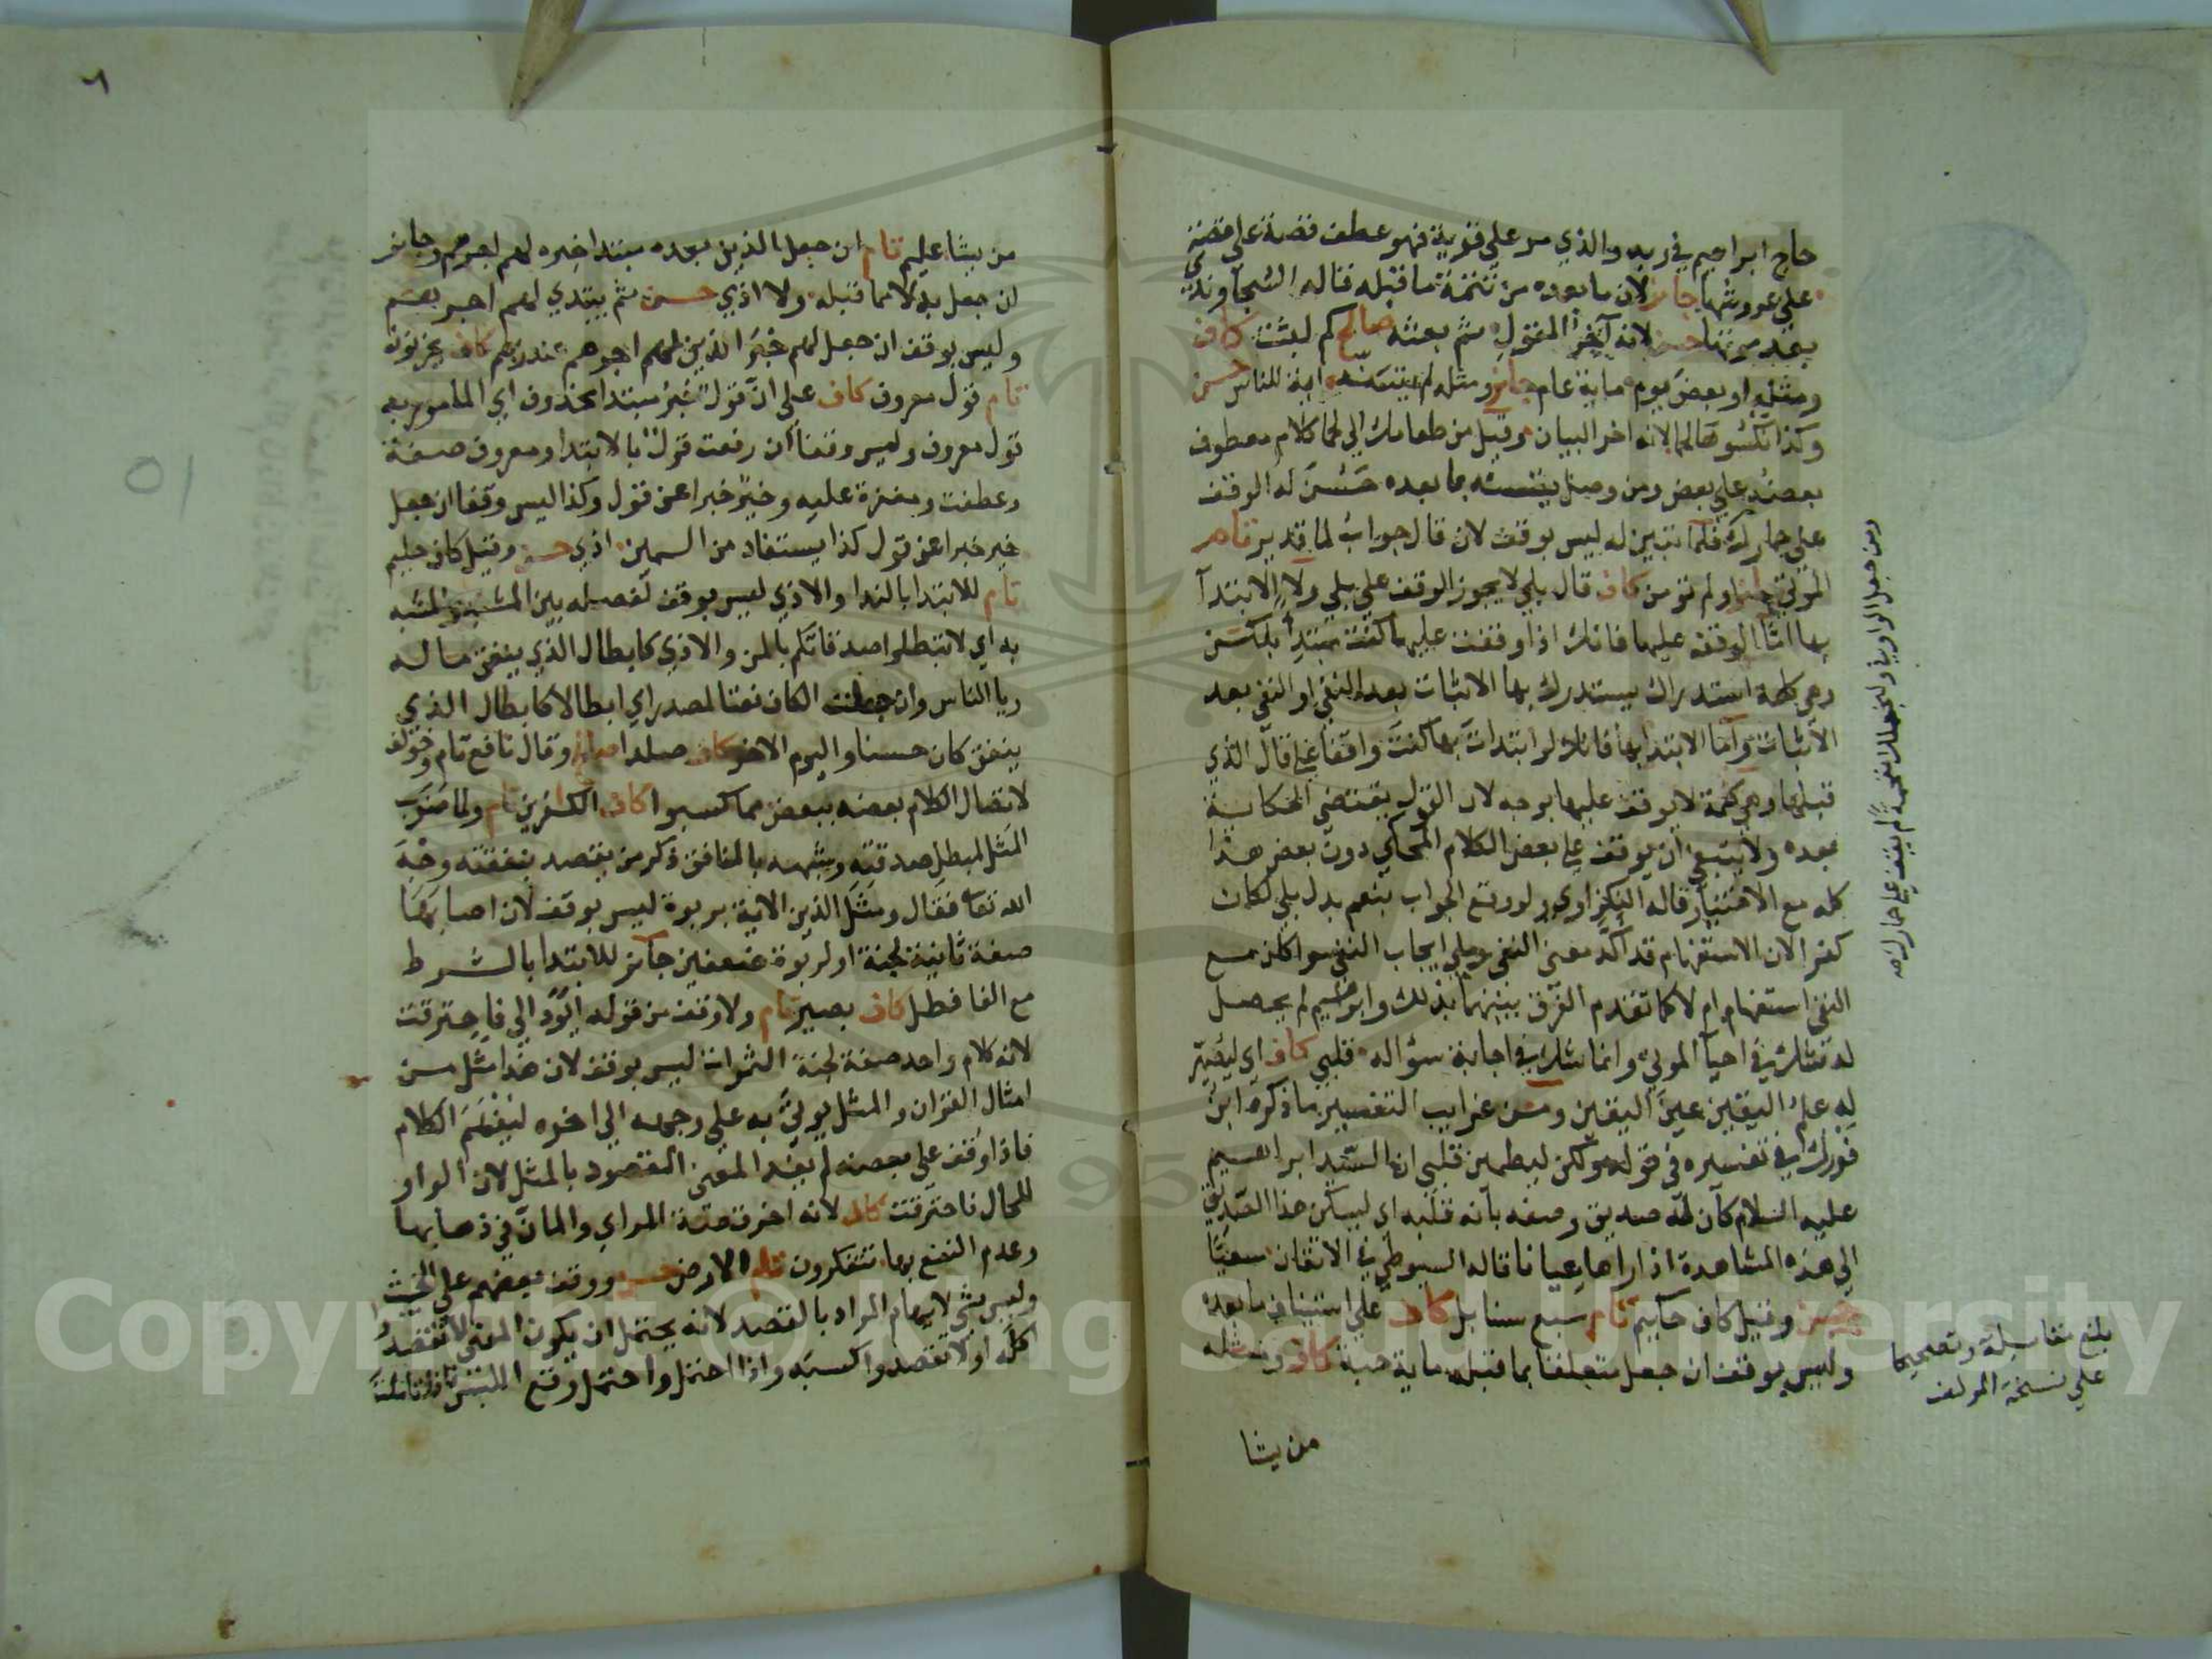 حاج ابراهيم في ربه والذي مر علي قرية فهو عطف قصة علي قصة
علي عروشها جائز لان ما بعده من تتمة ما قبله قاله السجاوندي
بعد موتها حسن لانه آخر المقول ثم بعثه صالح كم لبثت كاف
ومثله او بعض يوم ماية عام جائز ومثله لم يتسنه اية للناس حسن
وكذا نكسوها لحما لانه اخر البيان وقيل من طعامك الي لحما كلام معطوف
بعضه علي بعض ومن وصل يتسنه بما بعده حسن له الوقف
علي حمارك فلما تبين له ليس بوقف لان قال جواب لما قدير تام
الموتي جائز اولم تومن كاف قال بلي لا يجوز الوقف علي بلي ولا الابتدآ
بها اما الوقف عليها فانك اذا وقفت عليها كنت مبتدأ بلكن
وهي كلمة استدراك يستدرك بها الاثبات بعد النفي او النفي بعد
الاثبات وآما الابتدا بها فانك لو ابتدات بها كنت واقفا علي قال الذي
قبلها وهي كلمة لا يوقف عليها بوجه لان القول يقتضي الحكاية
بعده ولا ينبغي ان يوقف علي بعض الكلام المحكي دون بعض هذا
كله مع الاختيار قاله النكزاوي ولو وقع الجواب بنعم بدل بلي لكان
كفرا لان الاستفهام قد آكد معني النفي وبلي ايجاب النفي سوا كان مع
النفي استفهام ام لا كما تقدم الفرق بينهما بذلك وابراهيم لم يحصل
له شك في احيآ الموتي وانما شك في اجابة سؤاله قلبي كاف اي ليصير
له علم اليقين عين اليقين ومن غرايب التفسير ما ذكره ابن
فورك في تفسيره في قوله ولكن ليطمين قلبي ان السيد ابراهيم
عليه السلام كان له صديق وصفه بآنه قلبه اي ليسكن هذا الصديق
الي هذه المشاهدة اذا راها عيانا قاله السيوطي في الاتقان سعيا
حسن وقيل كاف حكيم تام سبع سنابل كاف علي استيناف ما بعده
وليس بوقف ان جعل متعلقا بما قبله ماية حبة كاف ومثله
من يشا
ومن جعل الواو في ولنجعلك مقحمة لم يقف علي حمارك اهـ
بلغ مقابلة وتصحيحا
علي نسخة المولف
٦
من يشا عليم تام ان جعل الذين بعده مبتدا خبره لهم اجرهم وجائز
ان جعل بدلا مما قبله ولا اذي حسن ثم يبتدي لهم اجرهم
وليس بوقف ان جعل لهم خبر الذين لهم اجرهم عند ربهم كاف يحزنون
تام قول معروف كاف علي ان قول خبر مبتدا محذوف اي المامور به
قول معروف وليس وقفا ان رفعت قول بالابتدا ومعروف صفة
وعطفت ومغفرة عليه وخير خبرا عن قول وكذا ليس وقفا ان جعل
خير خبرا عن قول كذا يستفاد من السمين اذي حسن وقيل كاف حليم
تام للابتدا بالندا والاذي ليس بوقف لفصله بين المشبه والمشبه
به اي لا تبطلوا صدقاتكم بالمن والاذي كابطال الذي ينفق ماله
ريا الناس وان جعلت الكاف نعتا لمصدر اي ابطالا كابطال الذي
ينفق كان حسنا واليوم الاخر كاف صلدا صالح وقال نافع تام وخولف
لاتصال الكلام بعضه ببعض مما كسبوا كاف الكفرين تام ولما ضرب
المثل لمبطل صدقته وشبهه بالمنافق ذكر من يقصد بنفقته وجه
الله تعا فقال ومثل الذين الاية بربوة ليس بوقف لان اصابها
صفة ثانية لجنة او لربوة ضعفين جائز للابتدا بالشرط
مع الفا فطل كاف بصير تام ولا وقف من قوله ايود الي فاحترقت
لانه كلام واحد صفة لجنة الثمرات ليس بوقف لان هذا مثل من
امثال القران والمثل يوتي به علي وجهه الي اخره ليفهم الكلام
فاذا وقف علي بعضه لم يفد المعني المقصود بالمثل لان الواو
للحال فاحترقت كاف لانه اخر قصة المراي والمان في ذهابها
وعدم النفع بها تتفكرون تام الارض حسن ووقف بعضهم علي الخبيث
وليس بشي لايهام المراد بالقصد لانه يحتمل ان يكون المعني لا تقصدوا
اكله او لا تقصدوا كسبه واذا احتمل واحتمل وقع اللبس